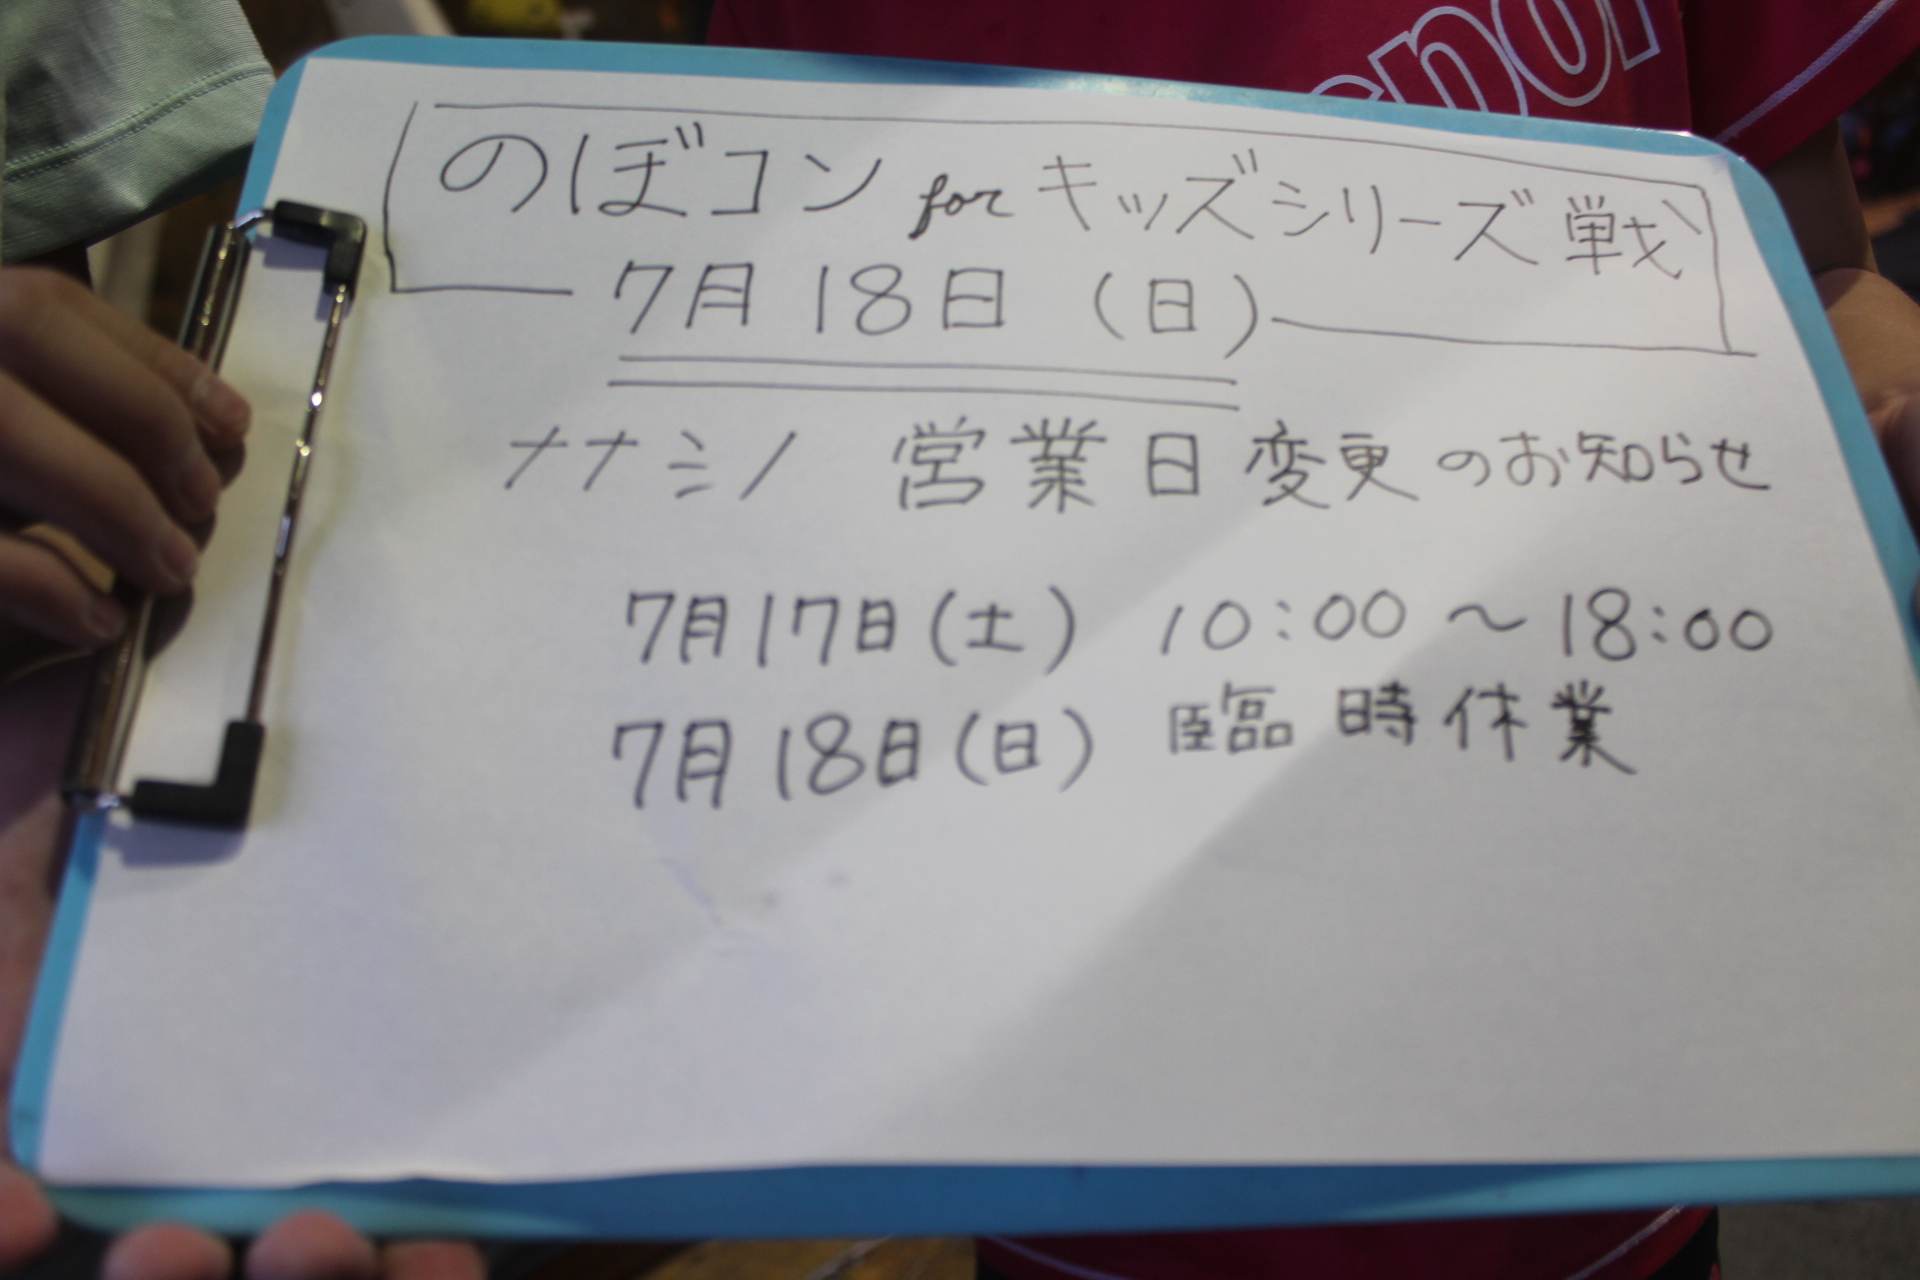 のぼコン for キッズシリーズ戦
7月18日 (日)
ナナシノ 営業日変更のお知らせ
7月17日(土) 10:00 ~ 18:00
7月18日(日) 臨時休業